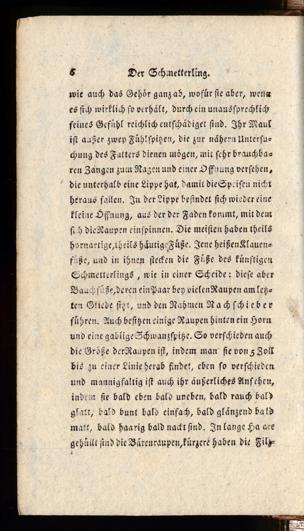 6 Der Schmetterling.
wie auch das Gehör ganz ab, wofür sie aber, wenn
es sich wirklich so verhält, durch ein unaussprechlich
feines Gefühl reichlich entschädiget sind. Ihr Maul
ist außer zwey Fühlspitzen, die zur nähern Untersu-
chung des Futters dienen mögen, mit sehr brauchba-
ren Zangen zum Nagen und einer Öffnung versehen,
die unterhalb eine Lippe hat, damit die Speisen nicht
heraus fallen. In der Lippe befindet sich wieder eine
kleine Öffnung, aus der der Faden kommt, mit dem
sich die Raupen einspinnen. Die meisten haben theils
hornartige, theils häutige Füße. Jene heißen Klauen-
füße, und in ihnen stecken die Füße des künftigen
Schmetterlings, wie in einer Scheide: diese aber
Bauchfüße, deren ein Paar bey vielen Raupen am letz-
ten Gliede sitzt, und den Nahmen Nachschieber
führen. Auch besitzen einige Raupen hinten ein Horn
und eine gablige Schwanzspitze. So verschieden auch
die Größe der Raupen ist, indem man sie von 5 Zoll
bis zu einer Linie herab findet, eben so verschieden
und mannigfaltig ist auch ihr äußerliches Ansehen,
indem sie bald eben bald uneben, bald rauch bald
glatt, bald bunt bald einfach, bald glänzend bald
matt, bald haarig bald nackt sind. In lange Haare
gehüllt sind die Bärenraupen, kürzere haben die Filz-